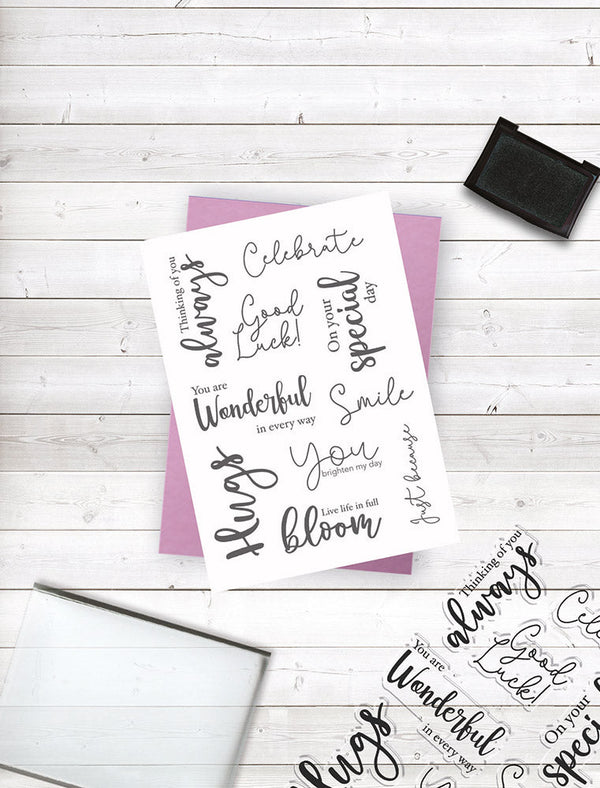 Thinking of you
always
Celebrate
Good
Luck!
On your
special
day
You are
Wonderful
in every way
Smile
Hugs
You
brighten my day
Just because
Live life in full
bloom
Thinking of you
always
Good
Luck!
You are
Wonderful
in every way
On your